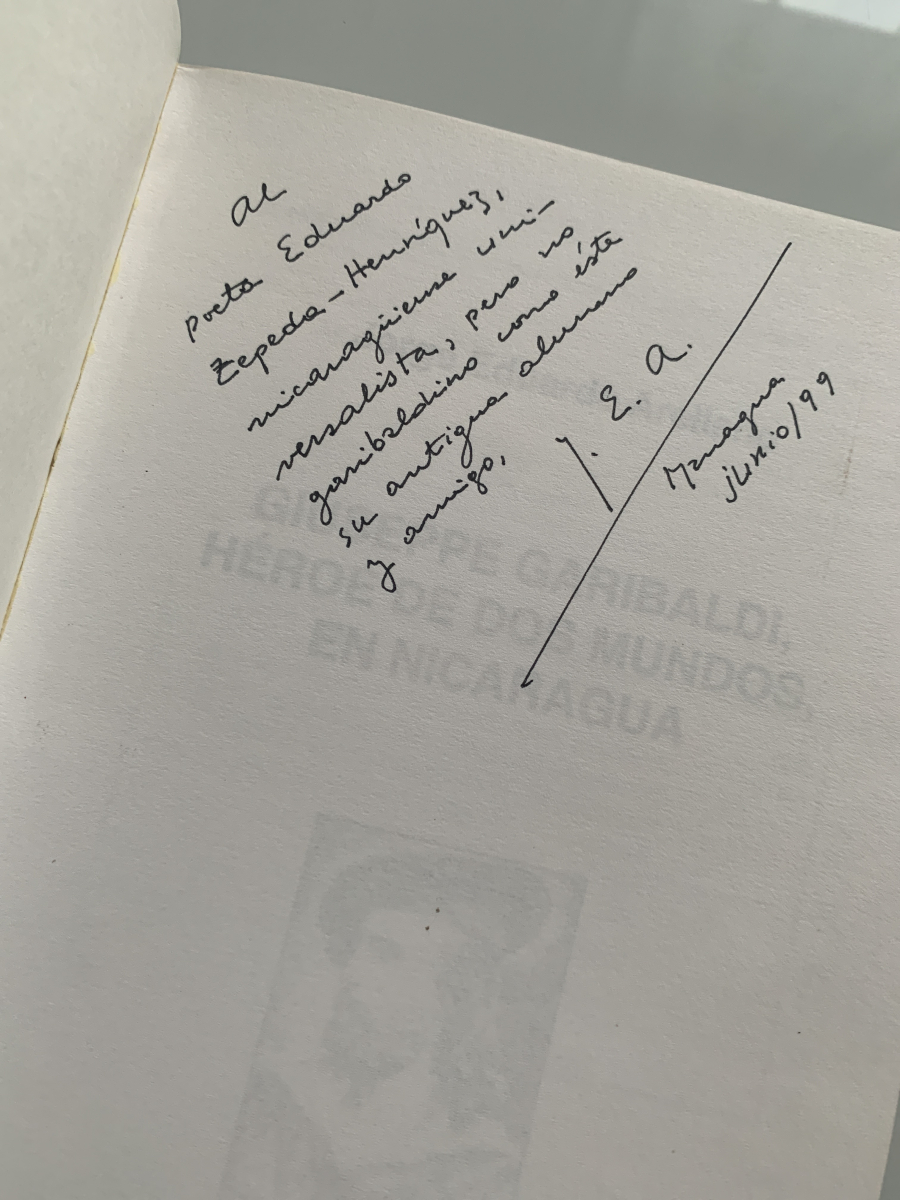 Al
poeta Eduardo
Zepeda-Henríquez,
nicaragüense uni-
versalista, pero no
garibaldino como éste
su antiguo alumno
y amigo,
J. E. A.
Managua
junio/99
GIUSEPPE GARIBALDI,
HÉROE DE DOS MUNDOS,
EN NICARAGUA